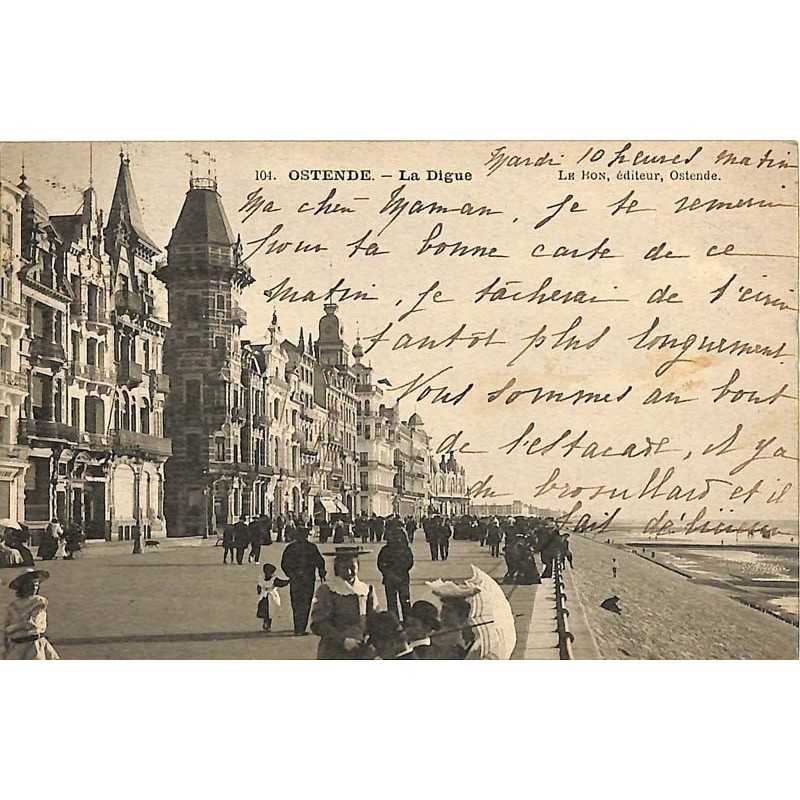 Mardi 10 heures matin
104. OSTENDE. – La Digue
LE BON, éditeur, Ostende.
Ma chère Maman, je te remercie
pour ta bonne carte de ce
matin, je tâcherai de t'écrire
tantôt plus longuement.
Nous sommes au bout
de l'estacade, il y a
du brouillard et il
fait délicieux